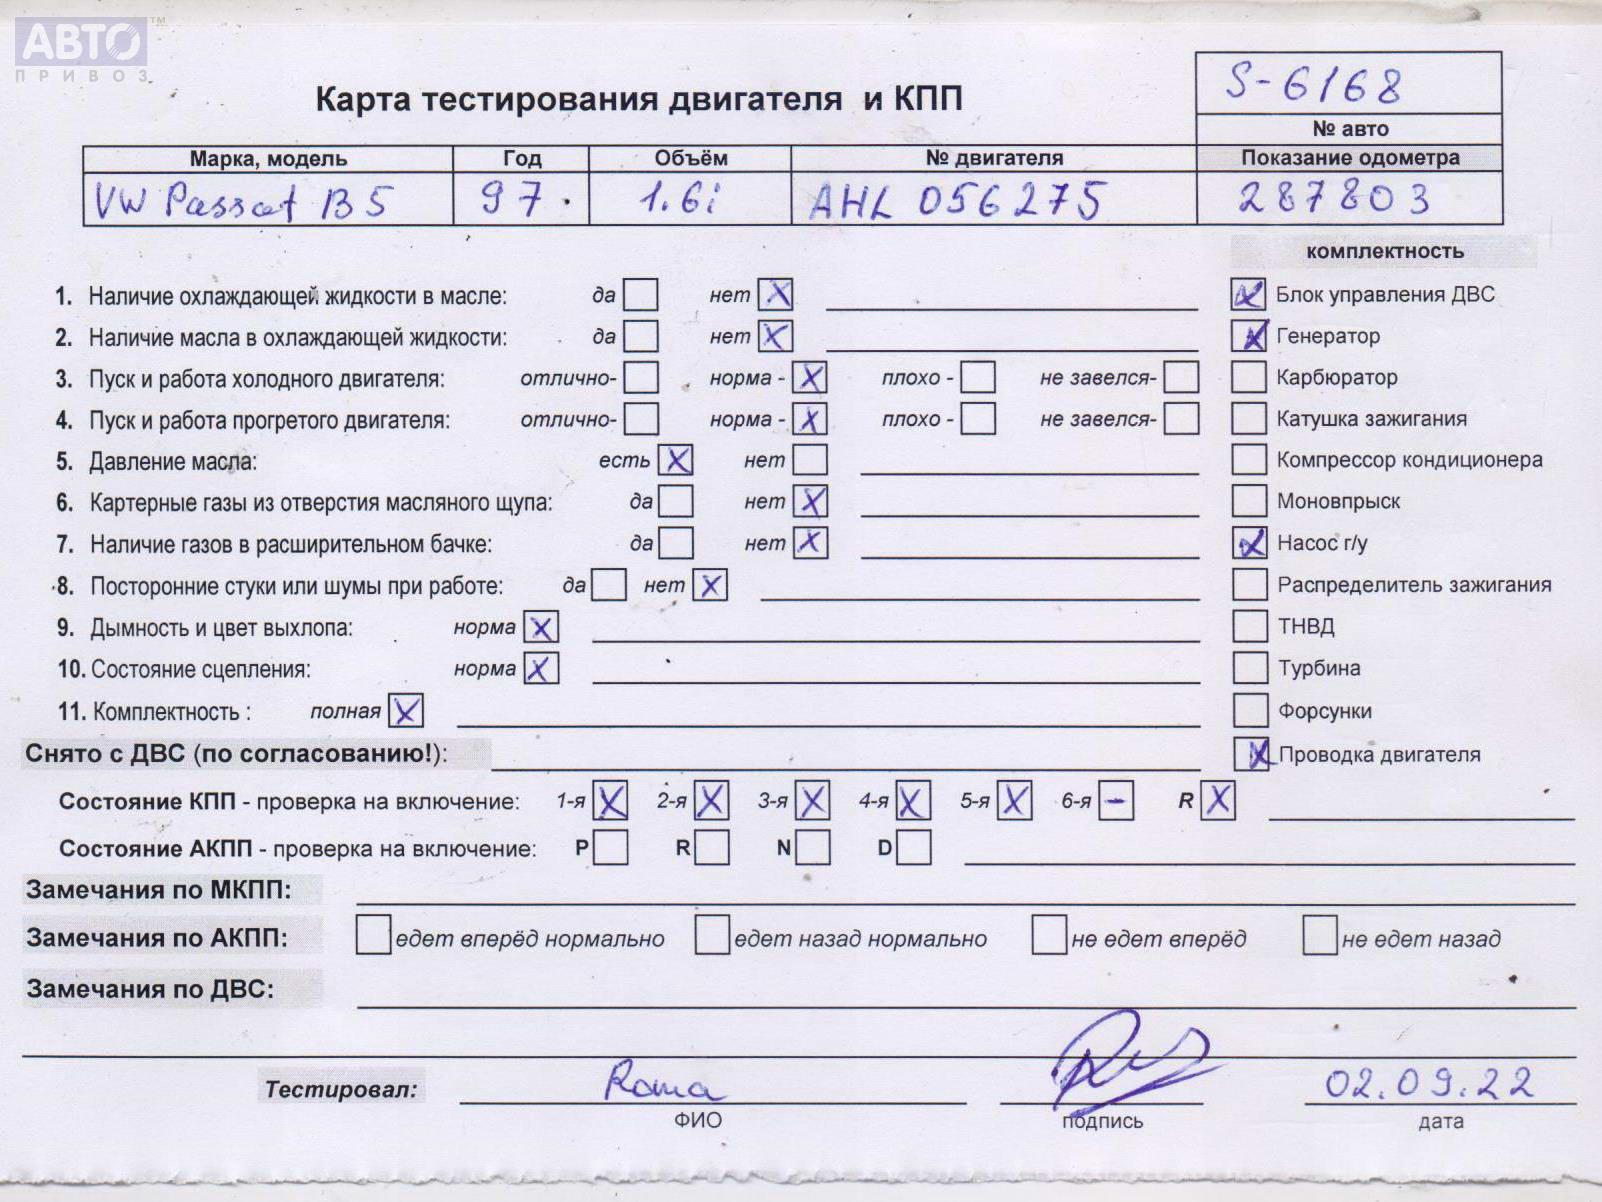 АВТО™
ПРИВОЗ
S-6168
Карта тестирования двигателя и КПП
№ авто
Марка, модель Год Объём № двигателя Показание одометра
VW Passat B5 97. 1.6i AHL 056275 287803
комплектность
1. Наличие охлаждающей жидкости в масле: да нет X Блок управления ДВС
2. Наличие масла в охлаждающей жидкости: да нет X Генератор
3. Пуск и работа холодного двигателя: отлично- норма - X плохо - не завелся- Карбюратор
4. Пуск и работа прогретого двигателя: отлично- норма - X плохо - не завелся- Катушка зажигания
5. Давление масла: есть X нет Компрессор кондиционера
6. Картерные газы из отверстия масляного щупа: да нет X Моновпрыск
7. Наличие газов в расширительном бачке: да нет X Насос г/у
8. Посторонние стуки или шумы при работе: да нет X Распределитель зажигания
9. Дымность и цвет выхлопа: норма X ТНВД
10. Состояние сцепления: норма X Турбина
11. Комплектность : полная X Форсунки
Снято с ДВС (по согласованию!): Проводка двигателя
Состояние КПП - проверка на включение: 1-я X 2-я X 3-я X 4-я X 5-я X 6-я - R X
Состояние АКПП - проверка на включение: P R N D
Замечания по МКПП:
Замечания по АКПП: едет вперёд нормально едет назад нормально не едет вперёд не едет назад
Замечания по ДВС:
Тестировал: Roma 02.09.22
ФИО подпись дата